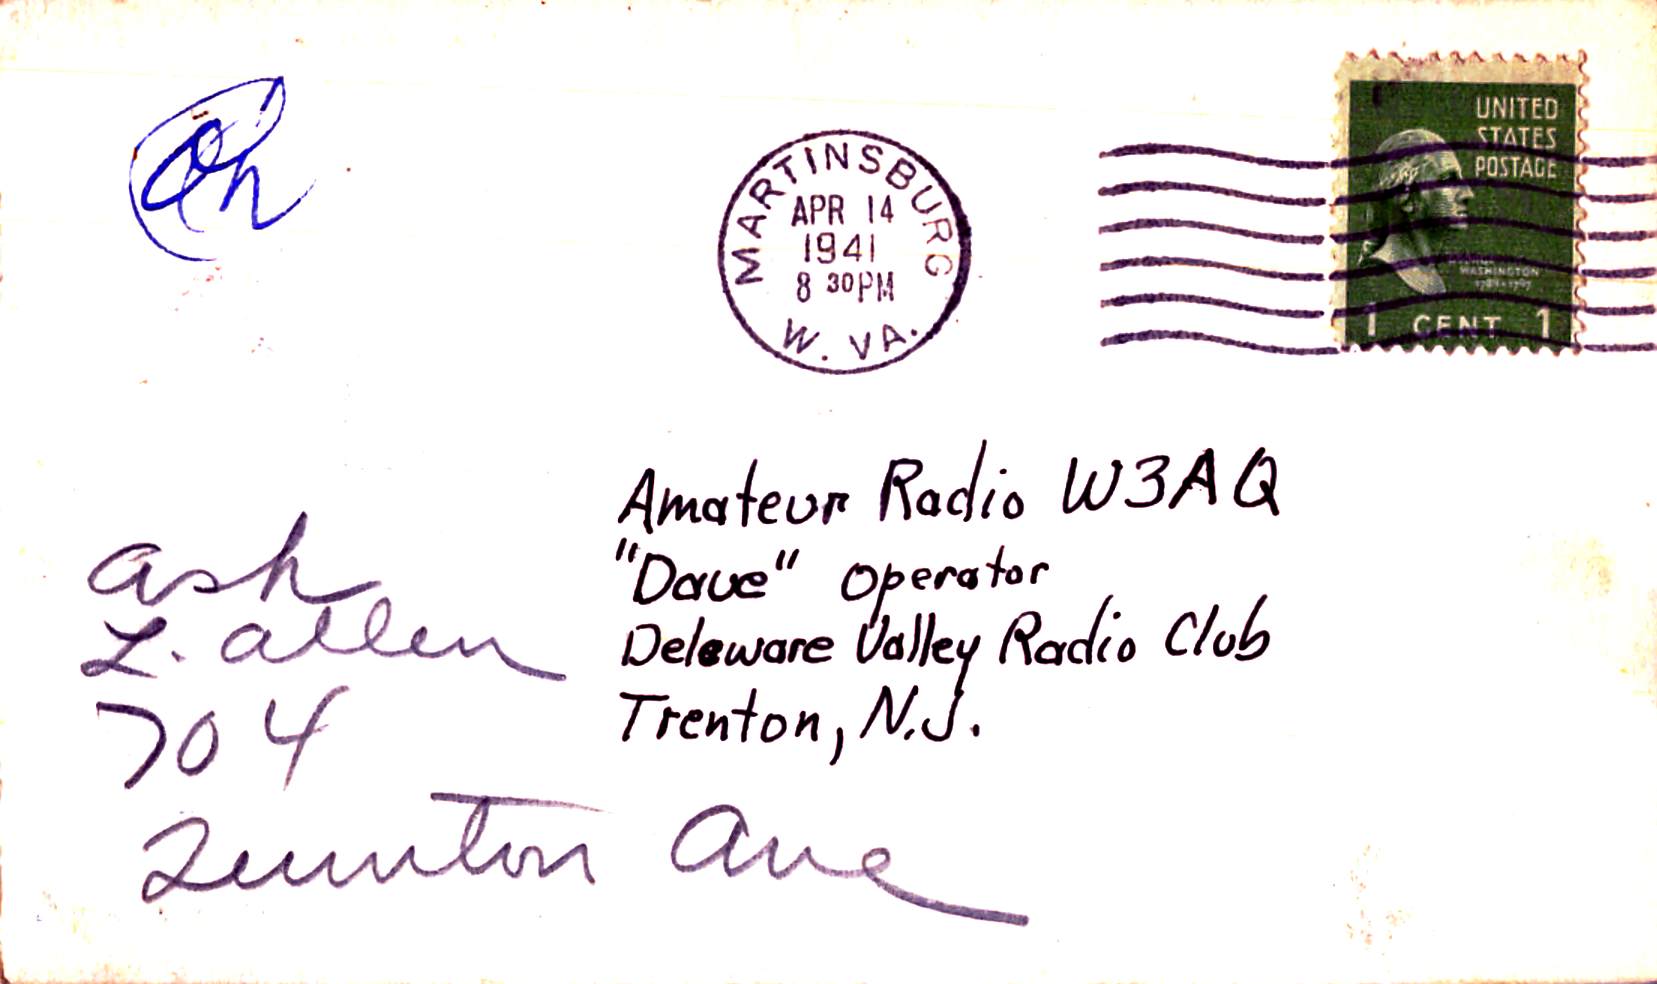 Oh
MARTINSBURG
APR 14
1941
8 30 PM
W. VA.
UNITED
STATES
POSTAGE
WASHINGTON
1789-1797
1 CENT 1
Amateur Radio W3AQ
"Dave" Operator
Delaware Valley Radio Club
Trenton, N.J.
Ash
L. Allen
704
Ave